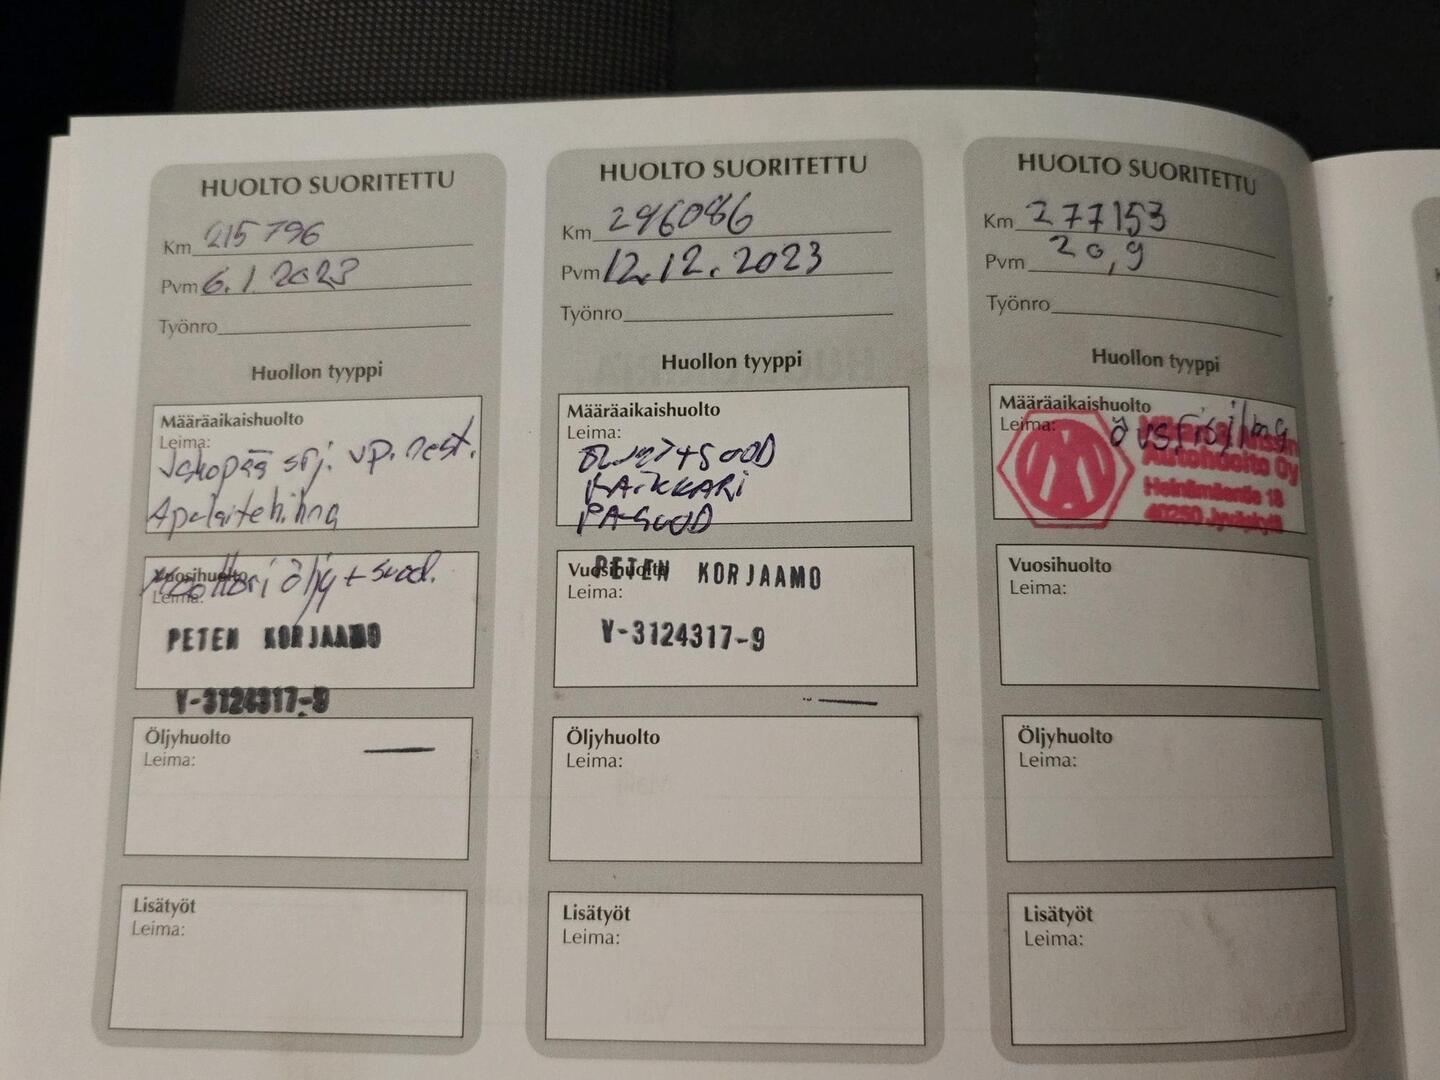 HUOLTO SUORITETTU
Km 215 796
Pvm 6.1.2023
Työnro
Huollon tyyppi
Määräaikaishuolto
Leima:
Jakopää srj. vp. nest.
Apulaitehihna
Vuosihuolto
Leima:
Moottori öljy + suod.
PETEN KORJAAMO
Y-3124317-9
Öljyhuolto
Leima:
Lisätyöt
Leima:
HUOLTO SUORITETTU
Km 246086
Pvm 12.12.2023
Työnro
Huollon tyyppi
Määräaikaishuolto
Leima:
ÖLJYT+SUOD
RA-SUOD
Vuosihuolto
Leima:
PETEN KORJAAMO
Y-3124317-9
Öljyhuolto
Leima:
Lisätyöt
Leima:
HUOLTO SUORITETTU
Km 277153
Pvm 20,9
Työnro
Huollon tyyppi
Määräaikaishuolto
Leima:
Autohuolto Oy
18
40250 Jyväskylä
Vuosihuolto
Leima:
Öljyhuolto
Leima:
Lisätyöt
Leima: